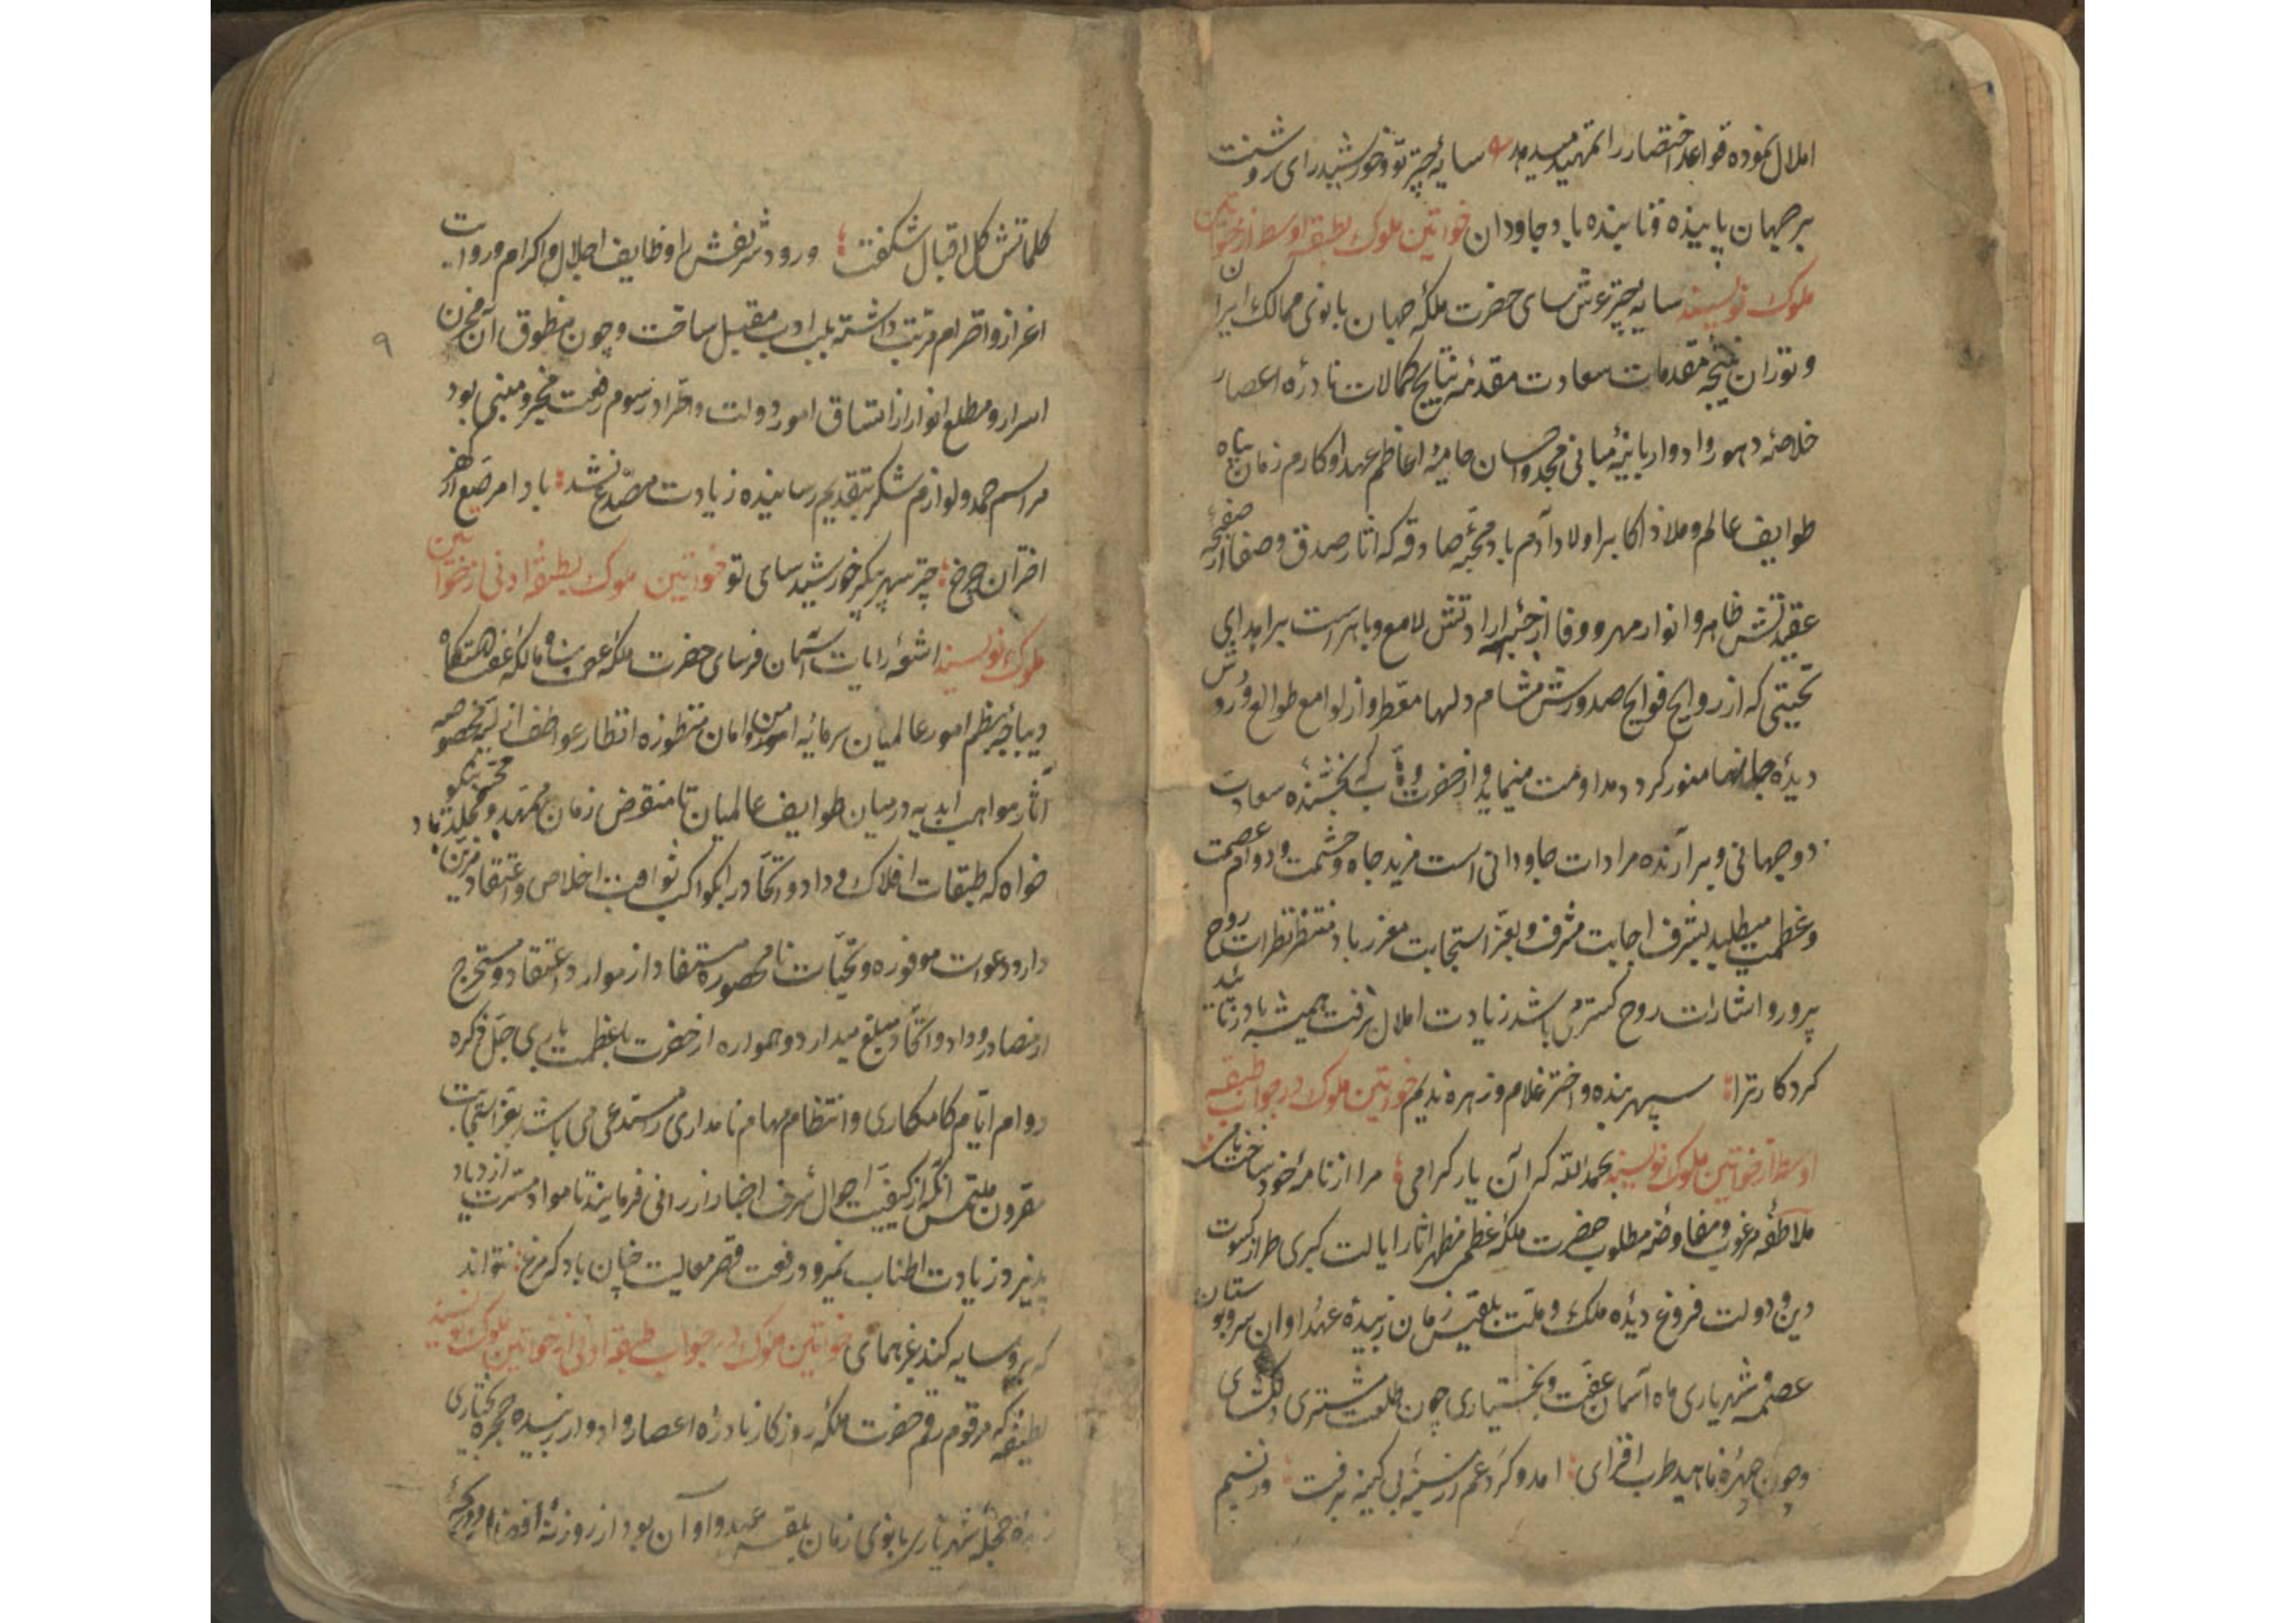 املال نموده قواعد اختصار را تمهید میدهد سایهٔ چتر تو و خورشید رای روشنت
بر جهان پاینده و تابنده باد جاودان خواتین ملوک بطبقه اوسط از خواتین
ملوک نویسند سایهٔ چتر عرش سای حضرت ملکهٔ جهان بانوی ممالک ایران
و توران نتیجه مقدمات سعادت مقدمهٔ نتایج کمالات نادرهٔ اعصار
خلاصهٔ دهور و ادوار بانیهٔ مبانی مجد و احسان حامیهٔ اعاظم عهد و اکارم زمان پناه
طوایف عالم و ملاذ اکابر اولاد آدم باد محبهٔ صادقه که آثار صدق و صفا از صفحهٔ
عقیدتش ظاهر و انوار مهر و وفا از ارادتش لامع و باهر است
تحیتی که از روایح فوایح صدورش مشام دلها معطر و از لوامع طوالع ورودش
دیدهٔ جانها منور گردد مداومت مینماید و از حضرت وهاب که بخشندهٔ سعادت
دوجهانی و برآرندهٔ مرادات جاودانی است مزید جاه و حشمت و دوام عصمت
و عظمت میطلبد بشرف اجابت مشرف و بعز استجابت معزز باد منتظر نظرات روح
پرور و اشارات روح گستر می باشد زیادت املال نرفت همیشه باد ز تایید
کردگار ترا سپهر بنده و اختر غلام و زهره ندیم خواتین ملوک در جواب طبقه
اوسط از خواتین ملوک نویسند بحمدالله که آن یار گرامی مرا از نامهٔ خود ساخت
ملاطفهٔ مرغوب و مفاوضهٔ مطلوب حضرت ملکهٔ عظمی مظهر آثار ایالت کبری طراز کسوت
دین و دولت فروغ دیدهٔ ملک و ملت بلقیس زمان زبیدهٔ عهد و اوان سرو بوستان
عصمه و شهریاری ماه آسمان عفت و بختیاری چون طلعت مشتری دلگشای
و چون چهرهٔ ناهید طرب افزای آمد و گرد غم از سینهٔ بی کینه برفت وز نسیم
کلماتش گل اقبال شکفت ورود شریفش را وظایف اجلال و اکرام و
اعزاز و احترام مرتب داشته بلب ادب مقبل ساخت و چون منطوق آن مخزن
اسرار و مطلع انوار از اتساق امور دولت و رسوم رفعت مخبر و منبی بود
مراسم حمد و لوازم شکر بتقدیم رسانیده زیادت مصدع نشد باد امر
اختران چرخ چتر سپهر پیکر خورشید سای تو خواتین ملوک بطبقهٔ ادنی از خواتین
ملوک نویسند اشعهٔ رایات آسمان فرسای حضرت ملکهٔ
دیباچهٔ نظم امور عالمیان سرمایهٔ امن و امان منظورهٔ انظار عواطف
آثار مواهب ابدیه در میان طوایف عالمیان تا منقرض زمان ممهد و مخلد باد
خواه که طبقات افلاک وداد و اتحاد را بکواکب ثواقب اخلاص و اعتقاد مزین
دارد دعوات موفوره و تحیات نامحصوره مستفاد از موارد اعتقاد و مستخرج
از مصادر وداد و اتحاد مبلغ میدارد و همواره از حضرت باعظمت باری جل ذکره
دوام ایام کامکاری و انتظام مهام نامداری مستدعی می باشد بعز استجابت
مقرون ملتمس آنکه از کیفیت احوال شرف اخبار ارزانی فرمایند تا مواد مسرت ازدیاد
پذیرد زیادت اطناب نمیرود رفعت قصر معالیت چنان باد که مرغ نتواند
که برو سایه کند غیر همای خواتین ملوک در جواب طبقهٔ ادنی از خواتین ملوک نویسند
لطیفه که مرقوم رقم حضرت ملکهٔ روزگار نادرهٔ اعصار و ادوار زبیدهٔ حجرهٔ بختیاری
حجلهٔ شهریاری بانوی زمان بلقیس عهد و اوان بود از
۹